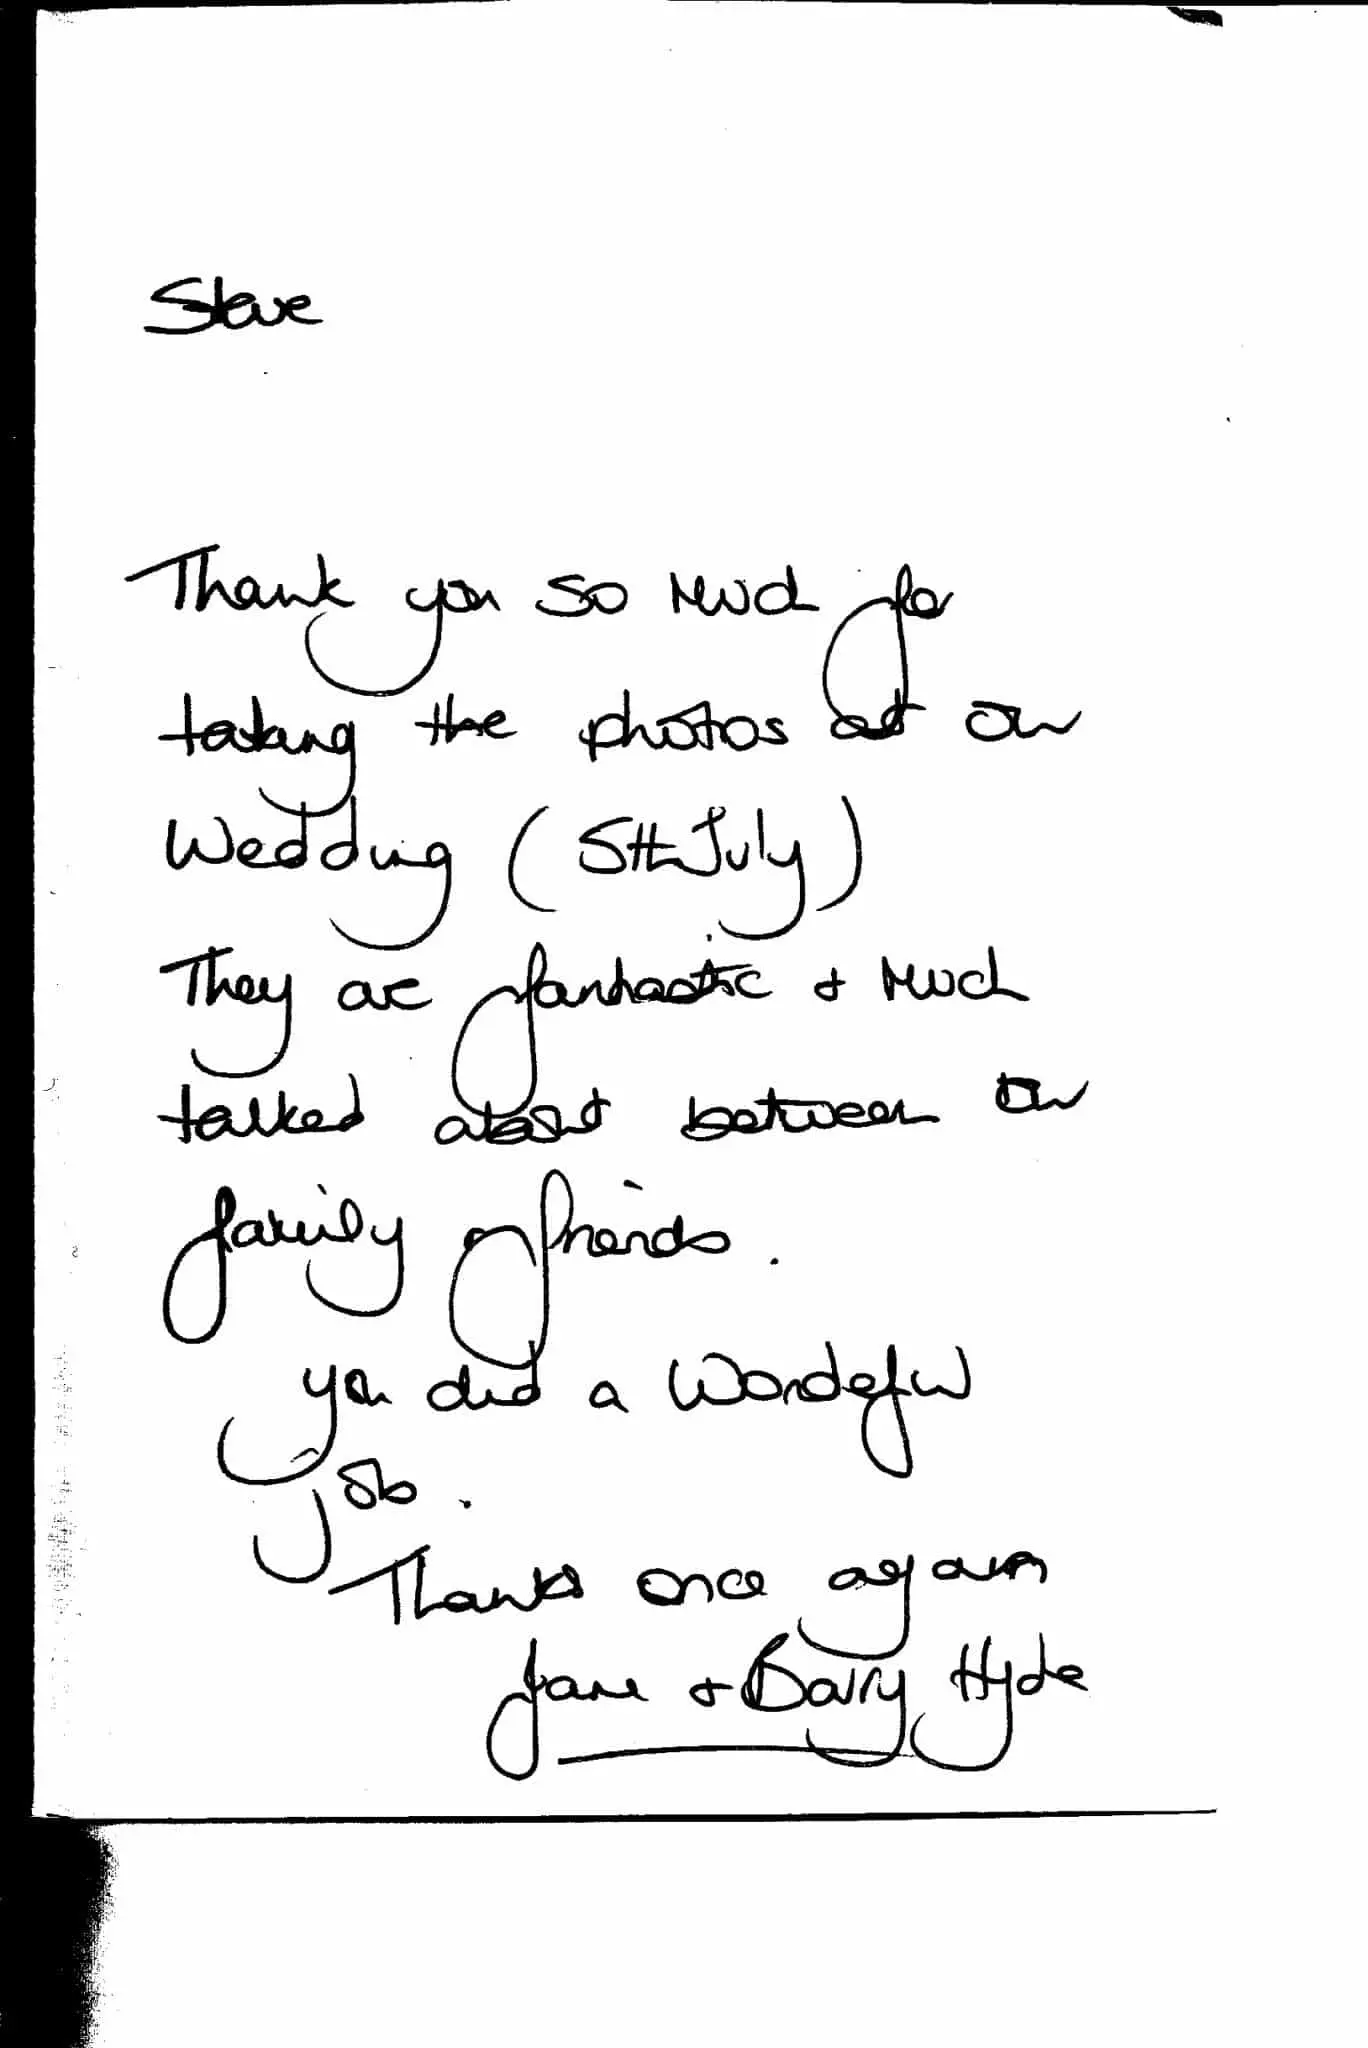 Steve
Thank you so Much for
taking the photos at our
Wedding (5th July)
They are fantastic + Much
talked about between our
family friends.
you did a Wonderful
job.
Thanks once again
Jane + Barry Hyde